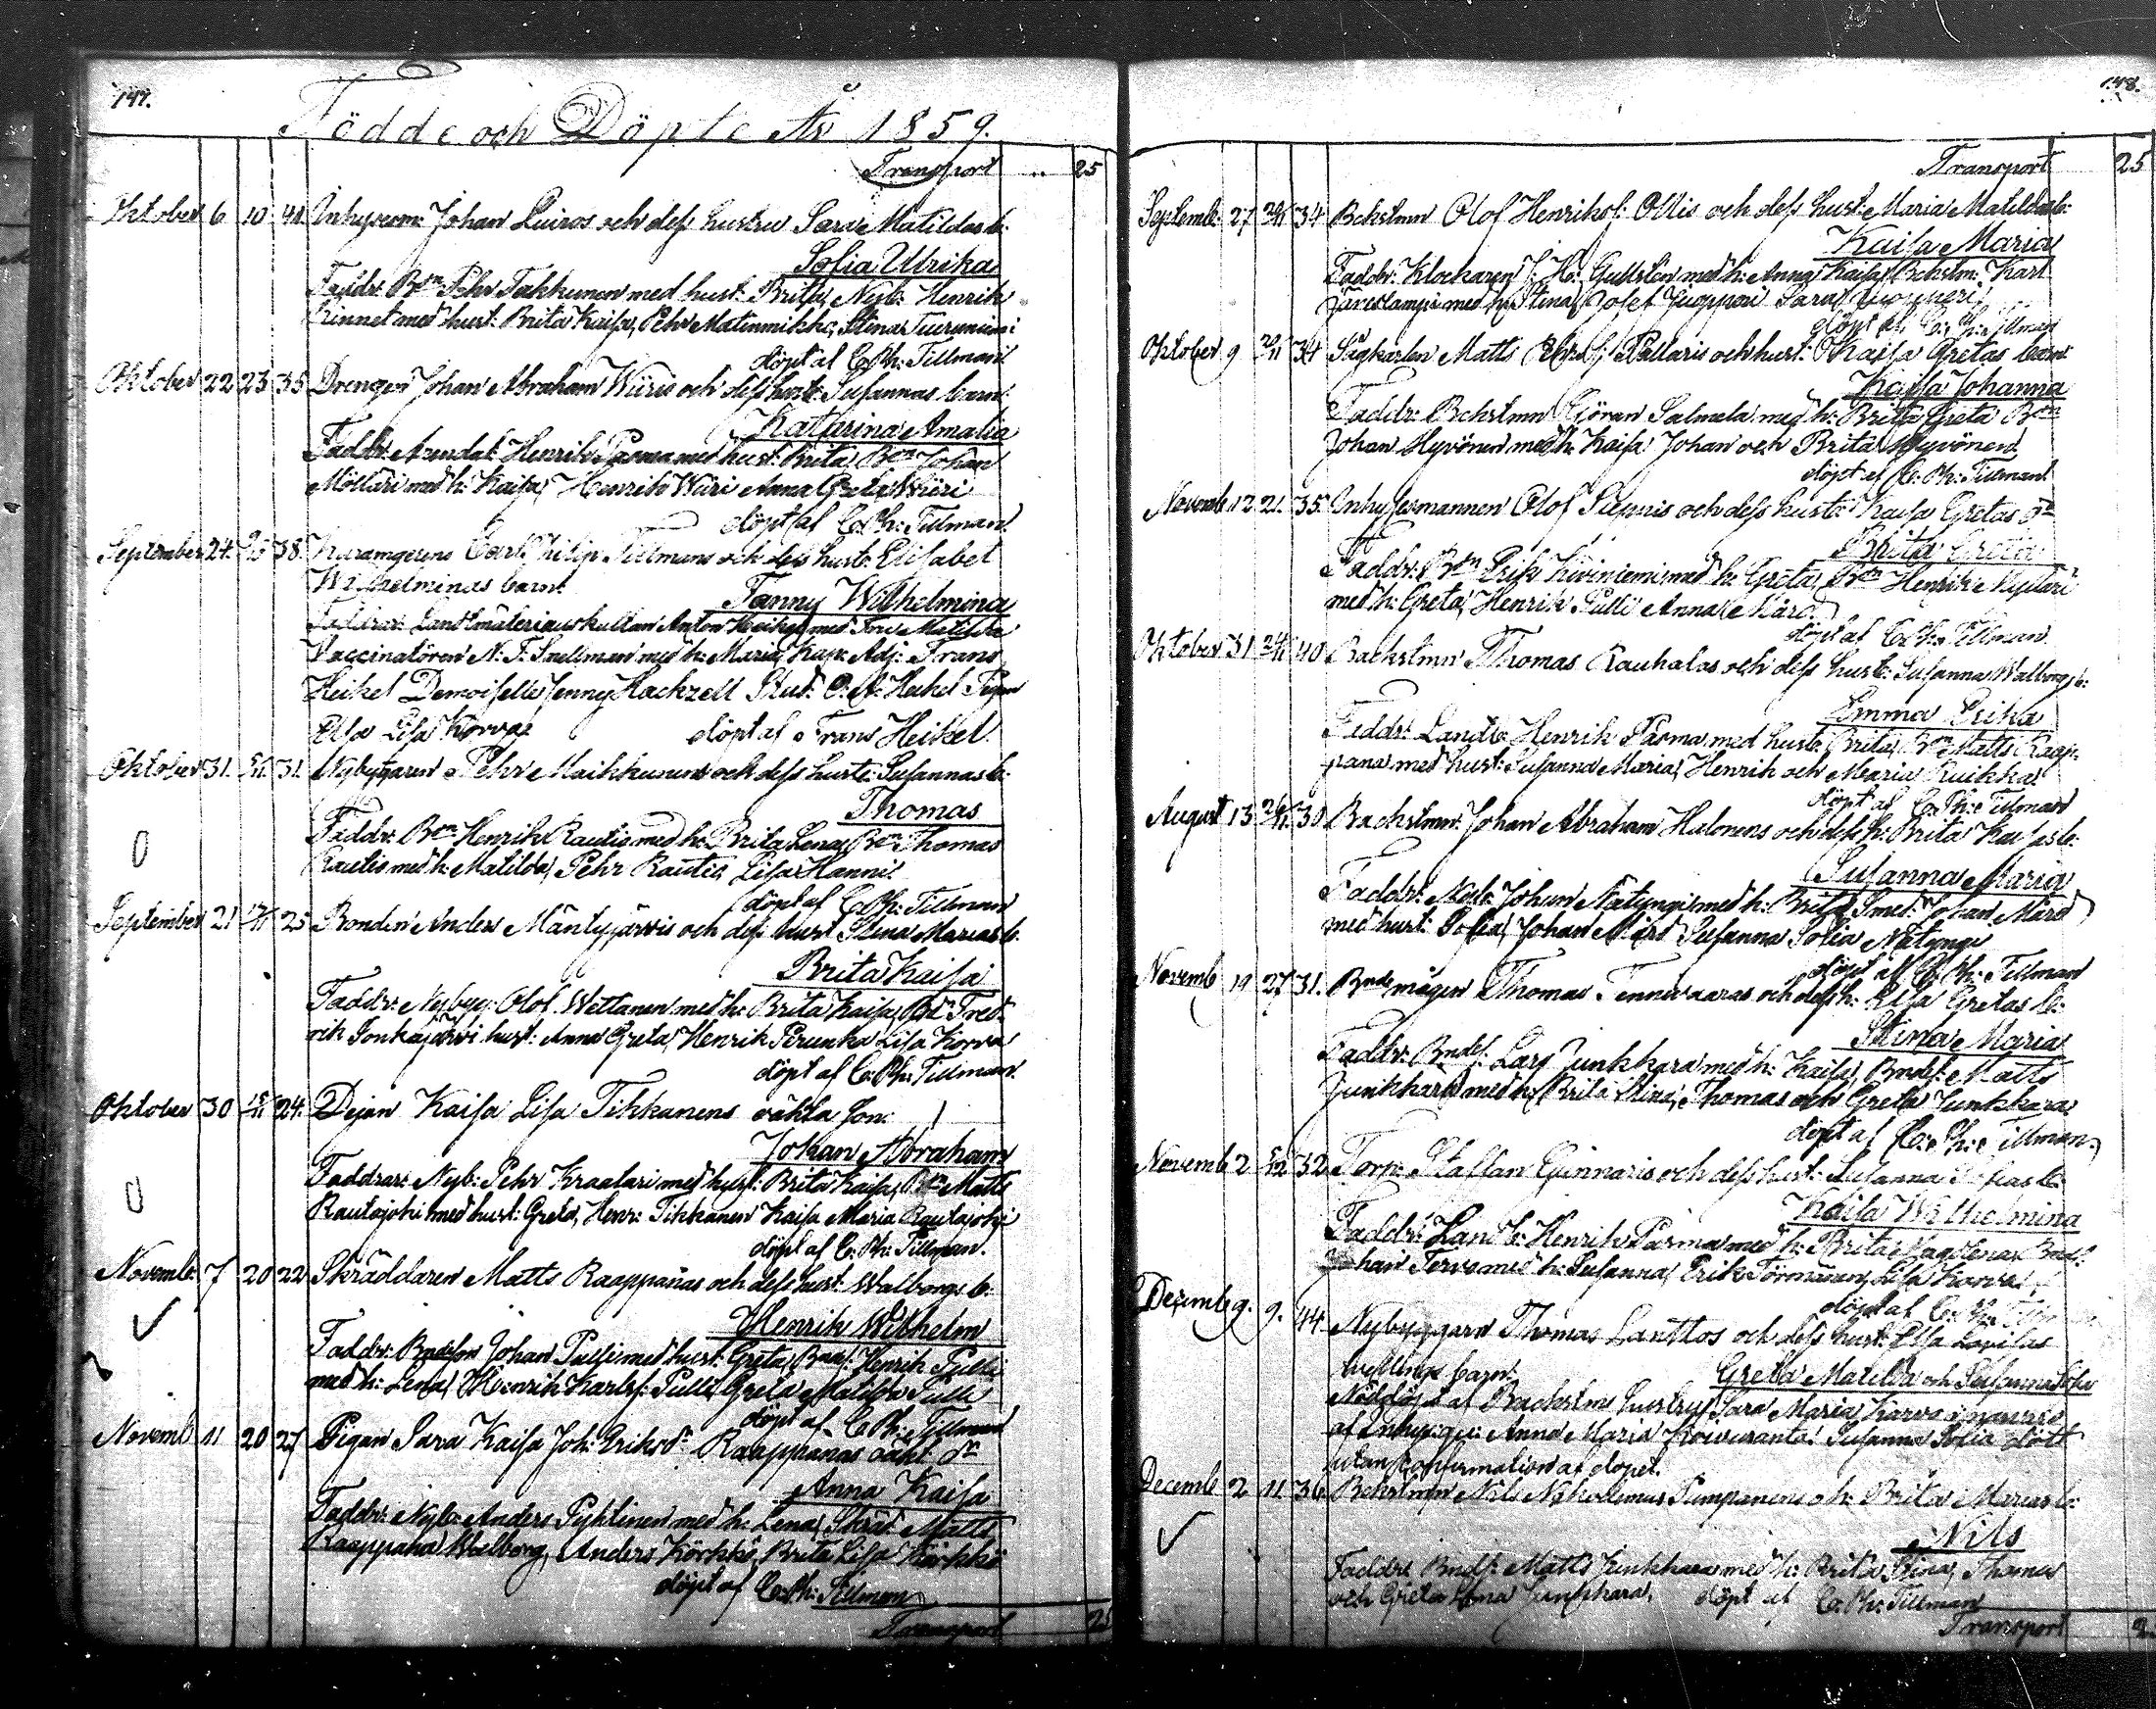 147.
Födde och Döpte År 1859.
Transport .. 25
Oktober 6 10 41. Inhysesm: Johan Luiros och dess hustru Sara Matildas b:
Sofia Ulrika
Faddr: Bdn Pehr Takkunen med hust: Brita, Nyb: Henrik
Kinnet med hust: Brita Kaisa, Pehr Matinmikko, Stina Tuuruniemi
döpt af C. Ph: Tillman
Oktober 22 23 35 Drengen Johan Abraham Wiiris och dess hust: Susannas barn:
Katarina Amalia
Faddr: Arendat: Henrik Pasma med hust: Brita, Bdn Johan
Mölläri med h: Kaisa, Henrik Wiiri Anna Greta Wiiri
döpt af C. Ph: Tillman.
September 24. 38. Carl Philip Tillmans och dess hust: Elisabet
Wilhelminas barn:
Fanny Wilhelmina
Faddrar: Landtmäteriauskultan Anton Heikel med Fru Matilda
Vaccinatören N. F. Snellman med h: Maria, Kap: Adj: Frans
Heikel Demoiselle Jenny Hackzell Stud: Heikel Pigan
Elsa Lisa Korva
döpt af Frans Heikel.
Oktober 31. 6/11. 31. Nybyggaren Pehr Maikkunens och dess hust: Susannas b:
Thomas
Faddr: Bdn Henrik Rautio med h: Brita Lena, Bdn Thomas
Rautio med h: Matilda, Pehr Rautio, Lisa Hanni
döpt af C. Ph: Tillman
September 21 13/11 25 Bonden Anders Mäntyjärvis och dess hust Stina Marias b:
Brita Kaisa
Faddr: Nybyg: Olof Wettanen med h: Brita Kaisa, Bdn Fred-
rik Sonkajärvi hust: Anna Greta, Henrik Perunka Lisa Korva
döpt af C. Ph: Tillman.
Oktober 30 18/11 24. Dejan Kaisa Lisa Tikkanens oäkta son:
Johan Abraham
Faddrar: Nyb: Pehr Kraatari med hust: Brita Kaisa, Bdn Matts
Rautajoki med hust: Greta, Henr: Tikkanen Kaisa Maria Rautajoki
döpt af C. Ph: Tillman.
Novemb: 7 20 22 Skräddaren Matts Raappanas och dess hust: Walborgs b:
Henrik Wilhelm
Faddr: Bndeson Johan Pulli med hust: Greta, Bndes: Henrik Pulli
med h: Lena, Henrik Karlss: Pulli, Greta Matilda Pulli
döpt af C. Ph: Tillman
Novemb 11 20 27 Pigan Sara Kaisa Joh: Eriksdr Raappanas oäkt: dr
Anna Kaisa
Faddr: Nyb: Anders Pyhtinen med h: Lena, Skräd: Matts
Raappana Walborg, Anders Körkkö, Brita Lisa Körkkö
döpt af C. Ph: Tillman
Transport 25
148.
Transport 25
Septemb: 27 34 Bckstmn Olof Henrikss: Ollis och dess hust: Maria Matildas b:
Kaisa Maria
Faddr: Klockaren J: H: Gullsten med h: Anna Kaisa, Bckstm: Karl
Järvilampi med h: Stina, Josef Juoppari Sara Juoppari
döpt af C. Ph: Tillman
Oktober 9 20/11 34 Sågkarlen Matts Pallaris och hust: Kaisa Gretas barn:
Kaisa Johanna
Faddr: Bckstmn Göran Salmela med h: Brita Greta Bdn
Johan Hyvönen med h: Kaisa Johan och Brita Hyvönen
döpt af C. Ph: Tillman.
Novemb 12 21. 35. Inhysesmannen Olof Siepnis och dess hust: Kaisa Gretas dr
Brita Greta
Faddr: Bdn Erik Kiviniemi med h: Greta, Bdn Henrik Myllari
med h: Greta, Henrik Pulli Anna Mård.
döpt af C. Ph: Tillman.
Oktober 31 24/11 40 Backstmn Thomas Rauhalas och dess hust: Susanna Walborgs b:
Emma Erika
Faddr: Landb: Henrik Pasma med hust: Brita, Bdn Matts Raap-
pana med hust: Susanna Maria, Henrik och Maria Kuikka
döpt af C. Ph: Tillman
August 13 26/11 30 Backstmn: Johan Abraham Halonens och dess h: Brita Kaisas b:
Susanna Maria
Faddr: Nyb: Johan Nätyngi med h: Brita, Smed: Johan Mård
med hust: Sofia, Johan Mård Susanna Sofia Nätynge
döpt af C. Ph: Tillman
Novemb 19 27 31. Bndemågen Thomas Tennivaaras och dess h: Elsa Gretas b:
Stina Maria
Faddr: Bndes: Lars Junkkara med h: Kaisa, Bndes: Matts
Junkkara med h: Brita Stina, Thomas och Greta Junkkara
döpt af C. Ph: Tillman
Novemb 2 32 Torp: Staffan Gunnaris och dess hust: Susanna Sofias b:
Kaisa Wilhelmina
Faddr: Landb: Henrik Pasma med h: Brita Magdlena Bnd:
Johan Tervo med h: Susanna, Erik Törmänen, Lisa Korva
döpt af C. Ph: Tillman
Decemb 9. 9. 44 Nybyggarn Thomas Lanttos och dess hust: Elsa Lovisas
tvillinge barn.
Greta Matilda och Susanna Sofia
Nöddöpt af Backstms hustru Sara Maria Karvo i närvaro
af Inhysige: Anna Maria Susanna Sofia dött
utan confirmation af dopet.
Decemb 2 11. 36 Bckstmn Nils Nikodemus Pumpanens o h: Brita Marias b:
Nils
Faddr: Bndes: Matts Junkkara med h: Brita Stina, Thomas
och Greta Lena Junkkara, döpt af C. Ph: Tillman
Transport